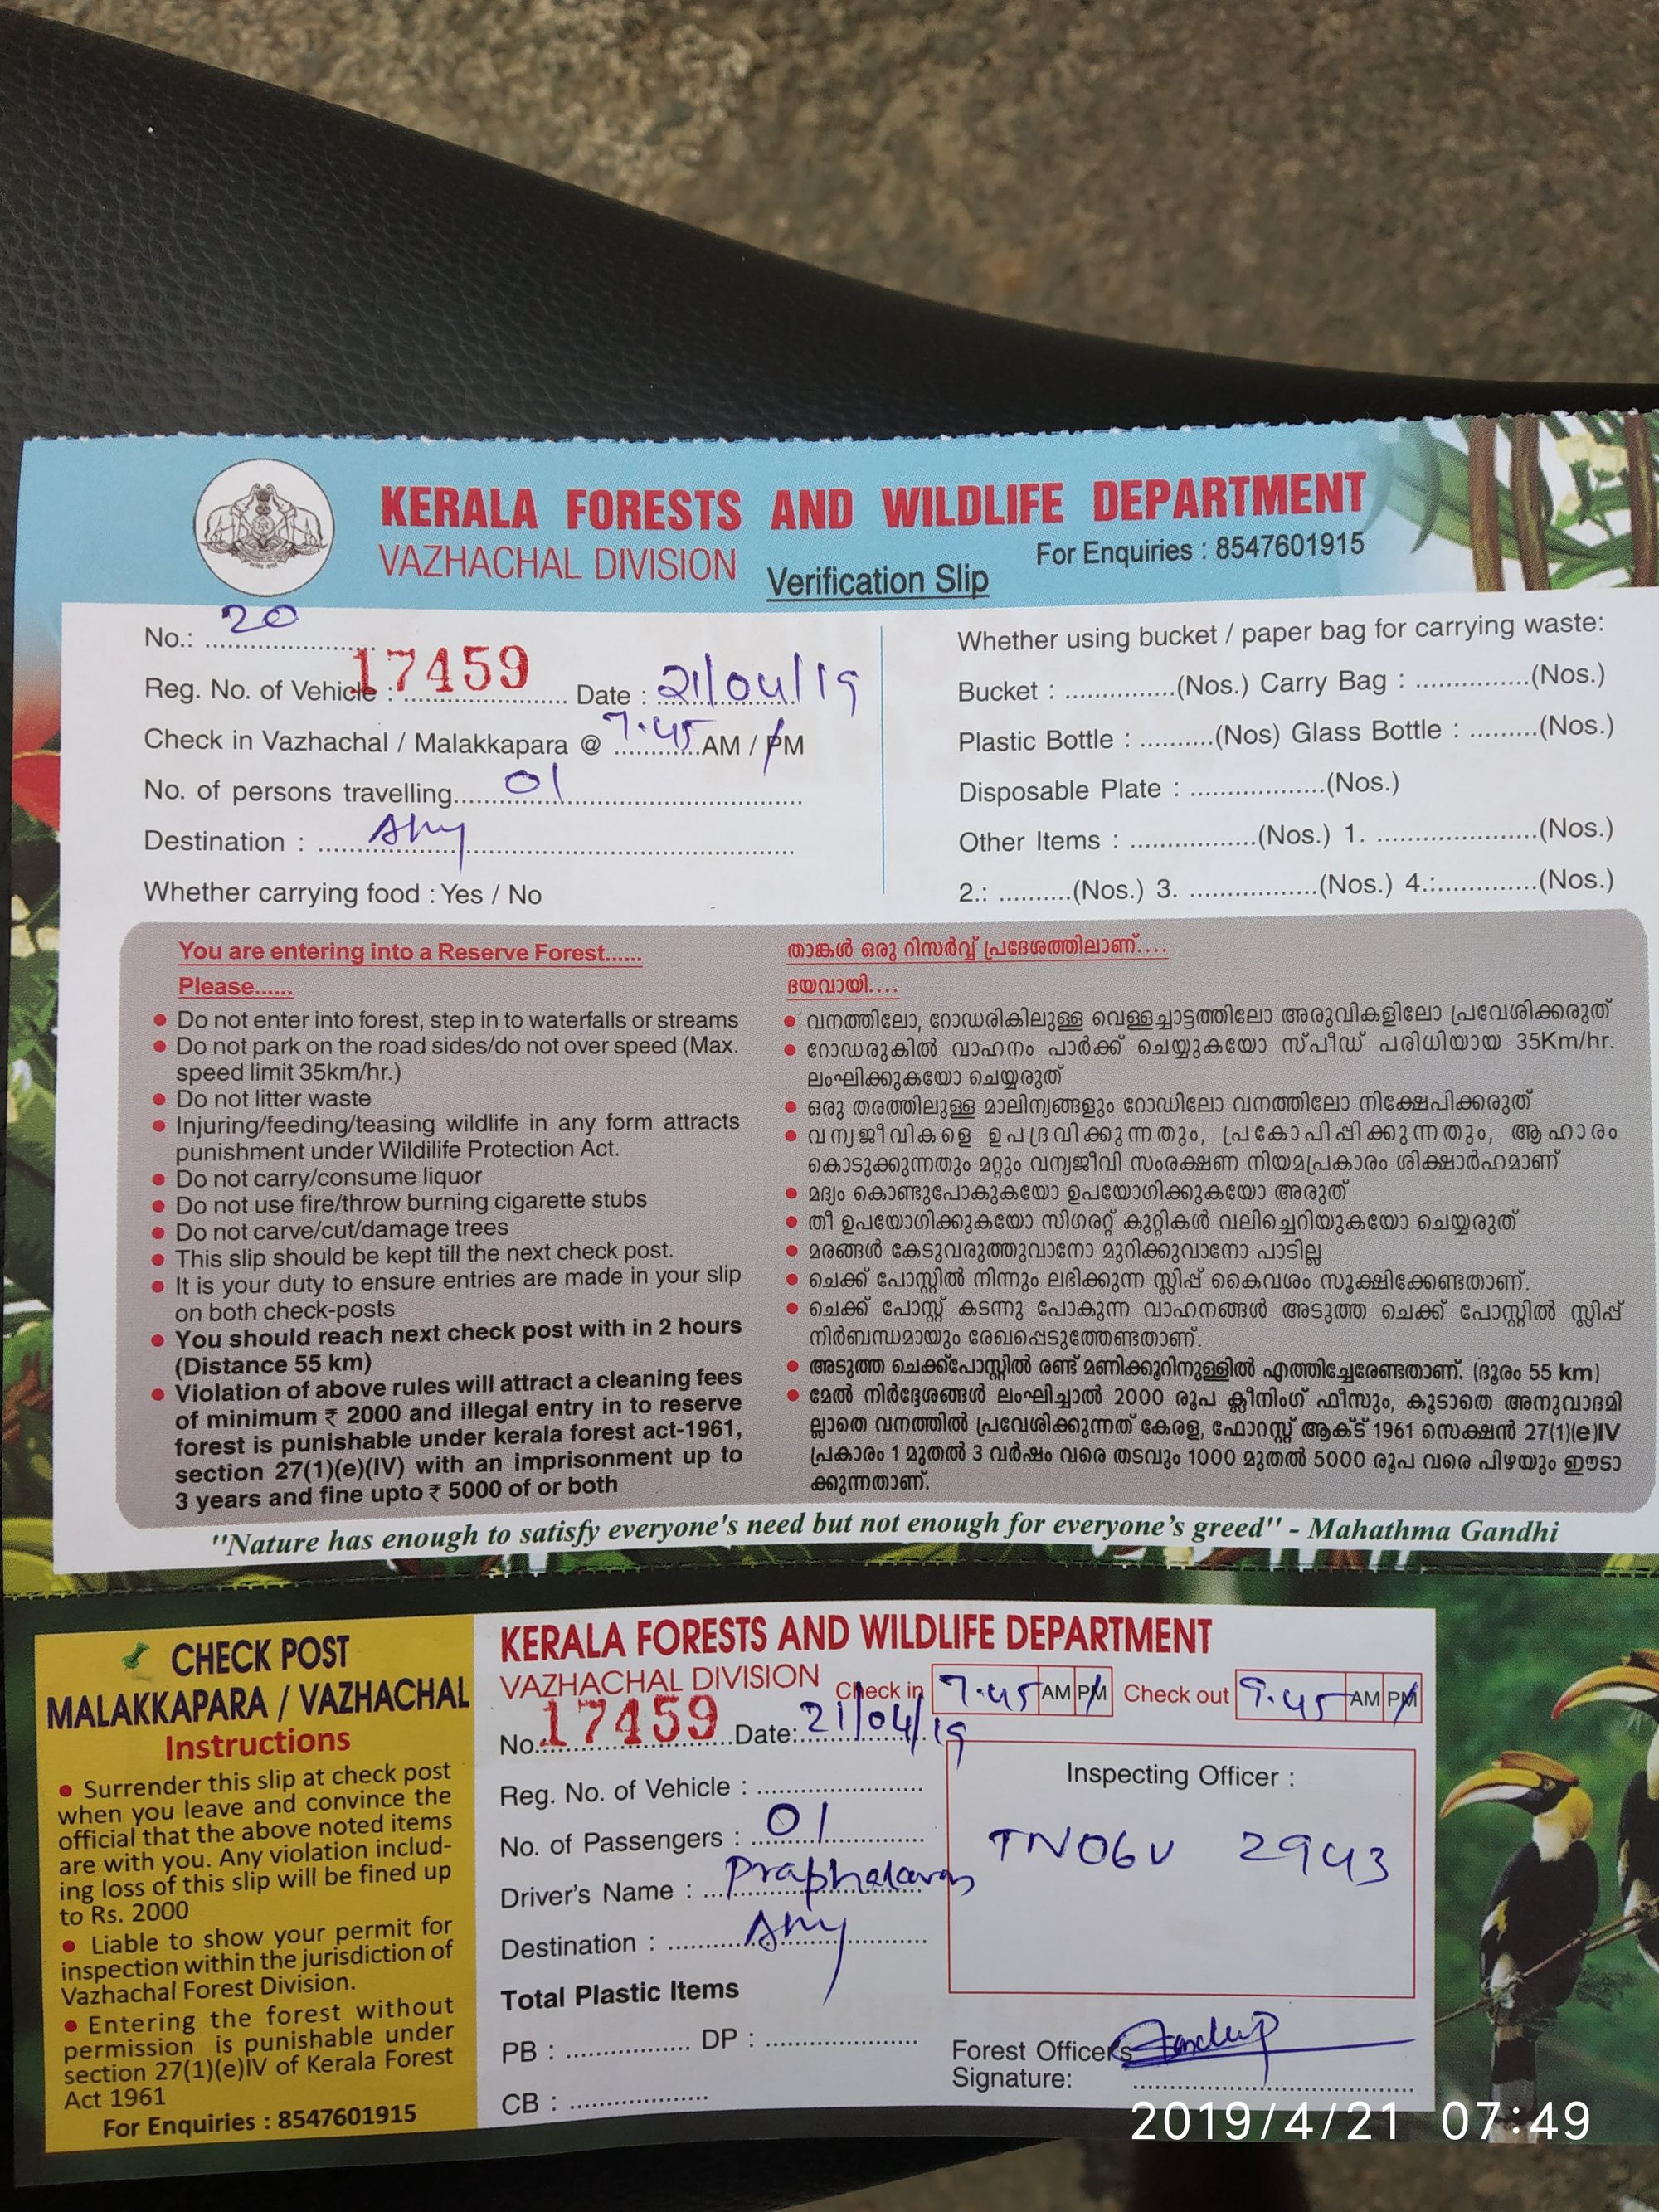 KERALA FORESTS AND WILDLIFE DEPARTMENT
VAZHACHAL DIVISION
For Enquiries : 8547601915
Verification Slip
No.: 20
17459
Reg. No. of Vehicle : Date : 21/04/19
Check in Vazhachal / Malakkapara @ 7.45 AM / PM
No. of persons travelling 01
Destination :
Whether carrying food : Yes / No
Whether using bucket / paper bag for carrying waste:
Bucket : ................(Nos.) Carry Bag : ................(Nos.)
Plastic Bottle : ..........(Nos) Glass Bottle : .........(Nos.)
Disposable Plate : ...................(Nos.)
Other Items : ..................(Nos.) 1. .......................(Nos.)
2.: ..........(Nos.) 3. ..................(Nos.) 4.:..............(Nos.)
You are entering into a Reserve Forest......
Please......
• Do not enter into forest, step in to waterfalls or streams
• Do not park on the road sides/do not over speed (Max.
speed limit 35km/hr.)
• Do not litter waste
• Injuring/feeding/teasing wildlife in any form attracts
punishment under Wildilife Protection Act.
• Do not carry/consume liquor
• Do not use fire/throw burning cigarette stubs
• Do not carve/cut/damage trees
• This slip should be kept till the next check post.
• It is your duty to ensure entries are made in your slip
on both check-posts
• You should reach next check post with in 2 hours
(Distance 55 km)
• Violation of above rules will attract a cleaning fees
of minimum ₹ 2000 and illegal entry in to reserve
forest is punishable under kerala forest act-1961,
section 27(1)(e)(IV) with an imprisonment up to
3 years and fine upto ₹ 5000 of or both
താങ്കൾ ഒരു റിസർവ്വ് പ്രദേശത്തിലാണ്....
ദയവായി....
• വനത്തിലോ, റോഡരികിലുള്ള വെള്ളച്ചാട്ടത്തിലോ അരുവികളിലോ പ്രവേശിക്കരുത്
• റോഡരുകിൽ വാഹനം പാർക്ക് ചെയ്യുകയോ സ്പീഡ് പരിധിയായ 35Km/hr.
ലംഘിക്കുകയോ ചെയ്യരുത്
• ഒരു തരത്തിലുള്ള മാലിന്യങ്ങളും റോഡിലോ വനത്തിലോ നിക്ഷേപിക്കരുത്
• വന്യജീവികളെ ഉപദ്രവിക്കുന്നതും, പ്രകോപിപ്പിക്കുന്നതും, ആഹാരം
കൊടുക്കുന്നതും മറ്റും വന്യജീവി സംരക്ഷണ നിയമപ്രകാരം ശിക്ഷാർഹമാണ്
• മദ്യം കൊണ്ടുപോകുകയോ ഉപയോഗിക്കുകയോ അരുത്
• തീ ഉപയോഗിക്കുകയോ സിഗരറ്റ് കുറ്റികൾ വലിച്ചെറിയുകയോ ചെയ്യരുത്
• മരങ്ങൾ കേടുവരുത്തുവാനോ മുറിക്കുവാനോ പാടില്ല
• ചെക്ക് പോസ്റ്റിൽ നിന്നും ലഭിക്കുന്ന സ്ലിപ്പ് കൈവശം സൂക്ഷിക്കേണ്ടതാണ്.
• ചെക്ക് പോസ്റ്റ് കടന്നു പോകുന്ന വാഹനങ്ങൾ അടുത്ത ചെക്ക് പോസ്റ്റിൽ സ്ലിപ്പ്
നിർബന്ധമായും രേഖപ്പെടുത്തേണ്ടതാണ്.
• അടുത്ത ചെക്ക്പോസ്റ്റിൽ രണ്ട് മണിക്കൂറിനുള്ളിൽ എത്തിച്ചേരേണ്ടതാണ്. (ദൂരം 55 km)
• മേൽ നിർദ്ദേശങ്ങൾ ലംഘിച്ചാൽ 2000 രൂപ ക്ലീനിംഗ് ഫീസും, കൂടാതെ അനുവാദമി
ല്ലാതെ വനത്തിൽ പ്രവേശിക്കുന്നത് കേരള, ഫോറസ്റ്റ് ആക്ട് 1961 സെക്ഷൻ 27(1)(e)IV
പ്രകാരം 1 മുതൽ 3 വർഷം വരെ തടവും 1000 മുതൽ 5000 രൂപ വരെ പിഴയും ഈടാ
ക്കുന്നതാണ്.
"Nature has enough to satisfy everyone's need but not enough for everyone's greed" - Mahathma Gandhi
CHECK POST
MALAKKAPARA / VAZHACHAL
Instructions
• Surrender this slip at check post
when you leave and convince the
official that the above noted items
are with you. Any violation includ-
ing loss of this slip will be fined up
to Rs. 2000
• Liable to show your permit for
inspection within the jurisdiction of
Vazhachal Forest Division.
• Entering the forest without
permission is punishable under
section 27(1)(e)IV of Kerala Forest
Act 1961
For Enquiries : 8547601915
KERALA FORESTS AND WILDLIFE DEPARTMENT
VAZHACHAL DIVISION Check in 7.45 AM PM Check out 9.45 AM PM
No. 17459 Date: 21/04/19
Reg. No. of Vehicle :
No. of Passengers : 01
Driver's Name :
Destination :
Total Plastic Items
PB : ................. DP : .....................
CB : ...................
Inspecting Officer :
TN06V 2943
Forest Officer's
Signature:
2019/4/21 07:49